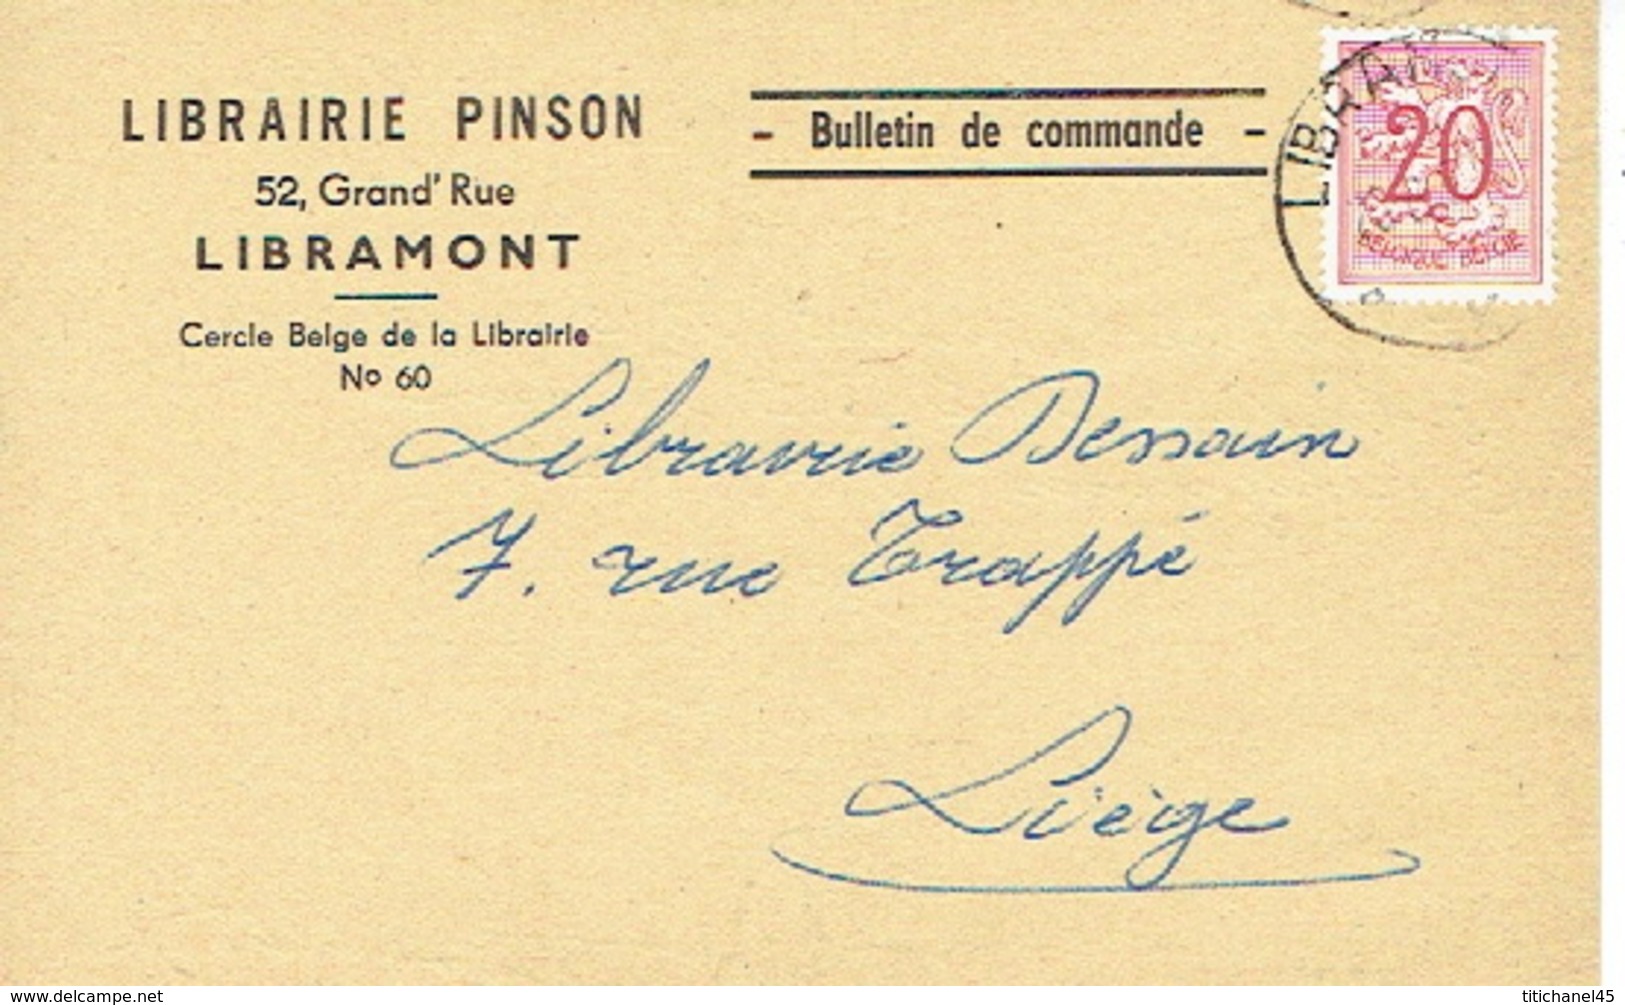 LIBRAIRIE PINSON
52, Grand' Rue
LIBRAMONT
Cercle Belge de la Librairie
No 60
- Bulletin de commande -
20
BELGIQUE BELGIE
Librairie Dessain
7. rue Trappé
Liège
delcampe.net
titichanel45